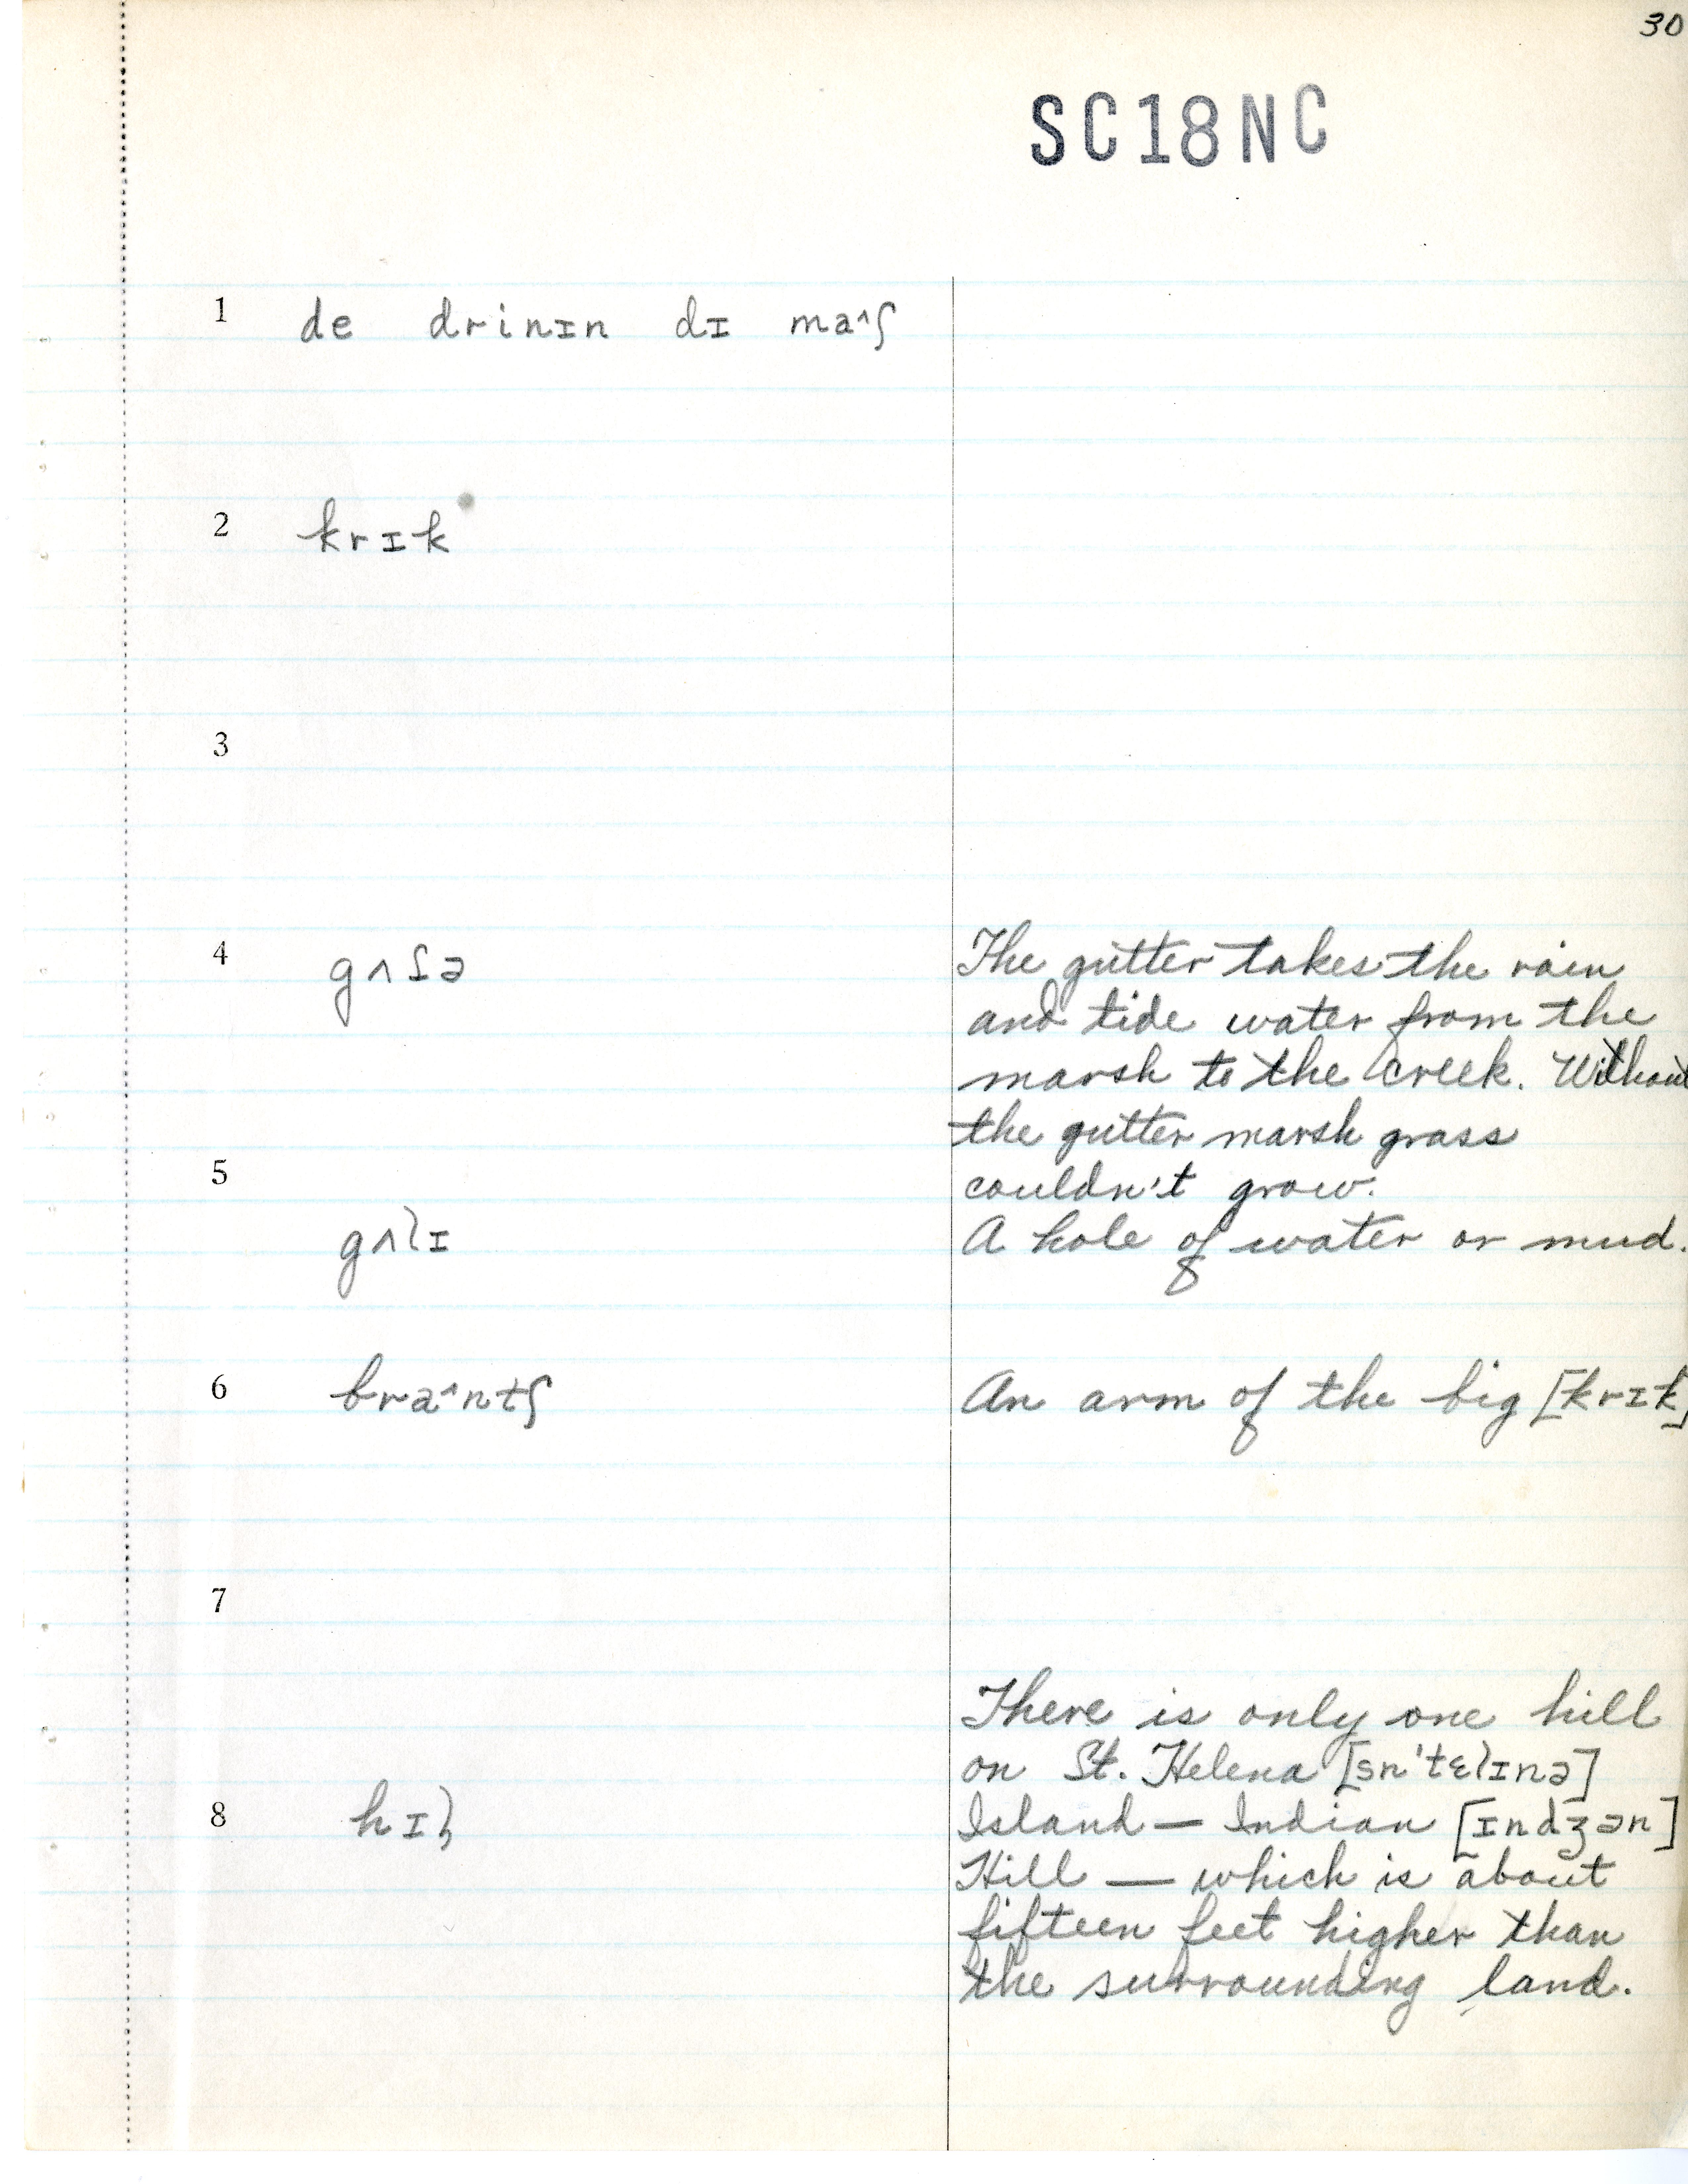 30
SC18NC
1 de drinɪn dɪ maˆʃ
2 krɪk
3
4 gʌɾə
The gutter takes the rain
and tide water from the
marsh to the creek. Without
the gutter marsh grass
5
couldn't grow.
gʌlɪ
A hole of water or mud.
6 braˆntʃ
An arm of the big [krɪk]
7
There is only one hill
on St. Helena [sn'tɛlɪnə]
8 hɪl
Island — Indian [ɪndʒən]
Hill — which is about
fifteen feet higher than
the surrounding land.